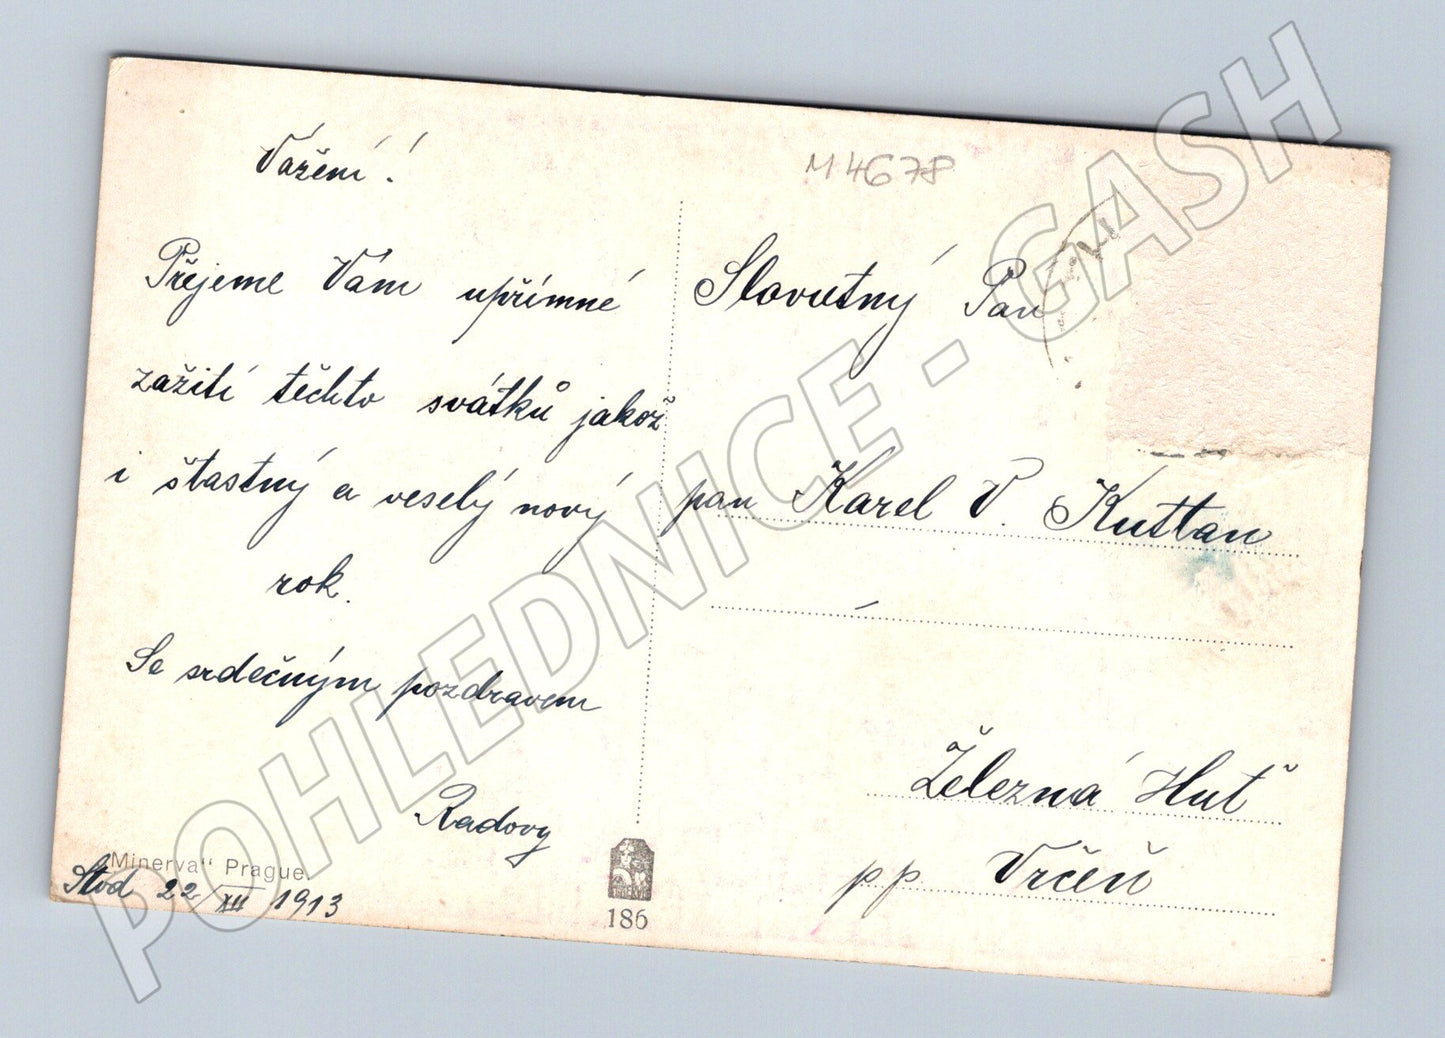 Vážení!
Přejeme Vám upřímné
zažití těchto svátků jakož
i šťastný a veselý nový
rok.
Se srdečným pozdravem
Radovy
"Minerva" Prague.
Stod 22/XII 1913
186
M 4678
Slovutný Pan
pan Karel V. Kuttan
Železná Huť
pp Vrčeň
POHLEDNICE - GASH